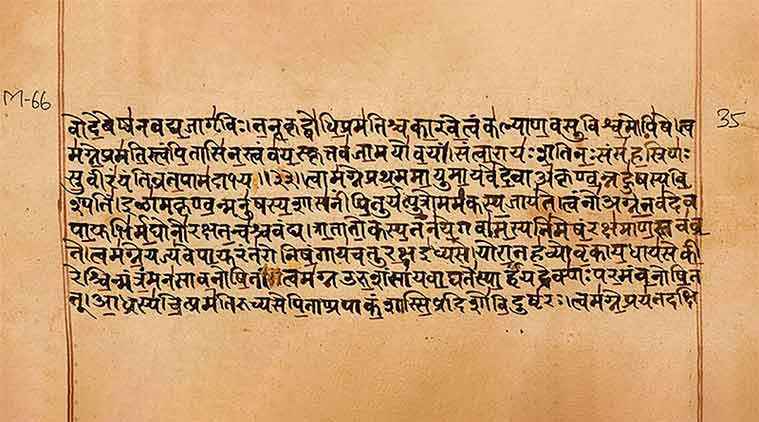 M-66
वो देवेष्वनवद्य जागृविः । तनूकृद्बोधि प्रमतिश्च कारवे त्वं कल्याण वसु विश्वमोपिषे । त्व
मग्ने प्रमतिस्त्वं पितासि नस्त्वं वयस्कृत्तव जामयो वयं । सं त्वा रायः शतिनः सं सहस्रिणः
सुवीरं यंति व्रतपामदाभ्य ॥ ३३ ॥ त्वामग्ने प्रथममायुमायवे देवा अकृण्वन्नहुषस्य वि
श्पतिं । इळामकृण्वन्मनुषस्य शासनीं पितुर्यत्पुत्रो ममकस्य जायते । त्वं नो अग्ने तव देव
पायुभिर्मघोनो रक्ष तन्वश्च वंद्य । त्राता तोकस्य तनये गवामस्यनिमेषं रक्षमाणस्तव व्र
ते । त्वमग्ने यज्यवे पायुरंतरोनिषंगाय चतुरक्ष इध्यसे । यो रातहव्योवृकाय धायसे की
रेश्चिन्मंत्रं मनसा वनोषि तं । त्वमग्न उरुशंसाय वाघते स्पार्हं यद्रेक्णः परमं वनोषि त
त् । आध्रस्य चित्प्रमतिरुच्यसे पिता प्र पाकं शास्सि प्र दिशो विदुष्टरः । त्वमग्ने प्रयतदक्षि
35